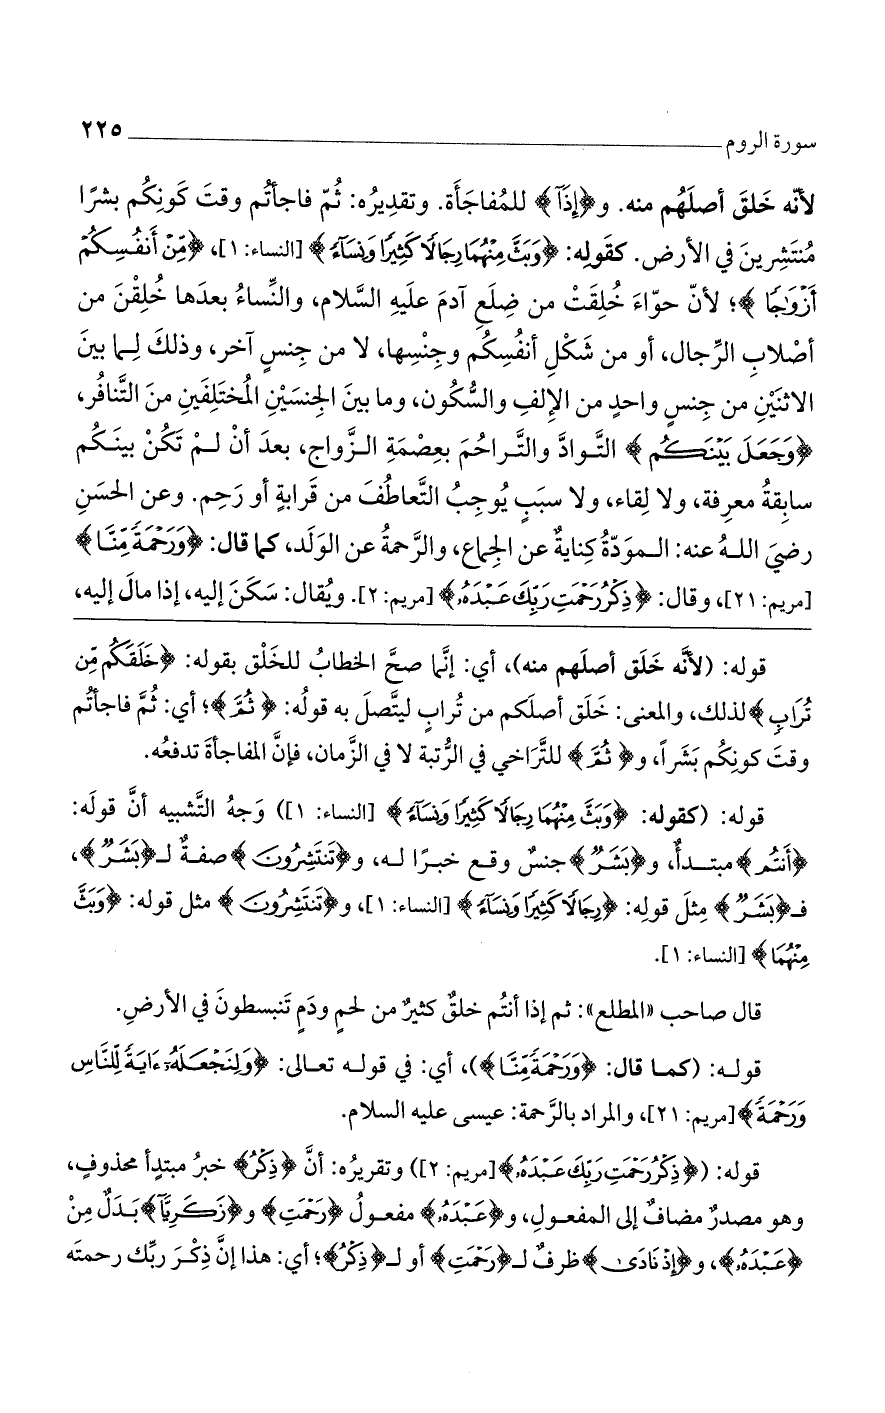 سورة الروم ٢٢٥
لأنّه خَلقَ أصلَهُم منه. و﴿إِذَآ﴾ للمُفاجَأة. وتقدِيرُه: ثُمّ فاجأتُم وقتَ كَونِكُم بشرًا
مُنتَشِرينَ في الأرض. كقَولِه: ﴿وَبَثَّ مِنْهُمَا رِجَالًا كَثِيرًا وَنِسَآءً﴾ [النساء: ١]، ﴿مِّنْ أَنفُسِكُمْ
أَزْوَٰجًا﴾؛ لأنّ حوّاءَ خُلِقَتْ من ضِلَعِ آدمَ علَيهِ السَّلام، والنِّساءُ بعدَها خُلِقْنَ من
أصْلابِ الرِّجال، أو من شَكْلِ أنفُسِكُم وجِنْسِها، لا من جِنسٍ آخر، وذلكَ لِما بينَ
الاثنَيْنِ من جِنسٍ واحدٍ من الإلفِ والسُّكُون، وما بينَ الجِنسَيْنِ المُختَلِفَينِ منَ التَّنافُر،
﴿وَجَعَلَ بَيْنَكُم﴾ التَّوادَّ والتَّراحُمَ بعِصْمَةِ الزَّواج، بعدَ أنْ لـمْ تَكُنْ بينَكُم
سابِقةُ معرِفة، ولا لِقاء، ولا سبَبٍ يُوجِبُ التَّعاطُفَ من قَرابةٍ أو رَحِم. وعن الحَسَنِ
رضيَ اللهُ عنه: المودّةُ كِنايةٌ عن الجِماع، والرَّحمةُ عن الوَلَد، كما قال: ﴿وَرَحْمَةً مِّنَّا﴾
[مريم: ٢١]، وقال: ﴿ذِكْرُ رَحْمَتِ رَبِّكَ عَبْدَهُۥ﴾ [مريم: ٢]. ويُقال: سَكَنَ إليه، إذا مالَ إليه،
قوله: (لأنَّه خَلَق أصلَهم منه)، أي: إنَّما صحَّ الخطابُ للخَلْق بقوله: ﴿خَلَقَكُم مِّن
تُرَابٍ﴾ لذلك، والمعنى: خَلَق أصلَكم من تُرابٍ ليتَّصلَ به قولُه: ﴿ثُمَّ﴾؛ أي: ثُمَّ فاجأتُم
وقتَ كونِكُم بَشَراً، و﴿ثُمَّ﴾ للتَّراخي في الرُّتبة لا في الزَّمان، فإنَّ المفاجأةَ تدفعُه.
قوله: (كقوله: ﴿وَبَثَّ مِنْهُمَا رِجَالًا كَثِيرًا وَنِسَآءً﴾ [النساء: ١]) وَجهُ التَّشبيه أنَّ قولَه:
﴿أَنتُم﴾ مبتدأٌ، و﴿بَشَرٌ﴾ جنسٌ وقع خبرًا له، و﴿تَنتَشِرُونَ﴾ صفةٌ لـ﴿بَشَرٌ﴾،
فـ﴿بَشَرٌ﴾ مِثلَ قولِه: ﴿رِجَالًا كَثِيرًا وَنِسَآءً﴾ [النساء: ١]، و﴿تَنتَشِرُونَ﴾ مثل قوله: ﴿وَبَثَّ
مِنْهُمَا﴾ [النساء: ١].
قال صاحب «المطلع»: ثم إذا أنتُم خلقٌ كثيرٌ من لحمٍ ودَمٍ تَنبسطونَ في الأرضِ.
قوله: (كما قال: ﴿وَرَحْمَةً مِّنَّا﴾)، أي: في قوله تعالى: ﴿وَلِنَجْعَلَهُۥٓ ءَايَةً لِّلنَّاسِ
وَرَحْمَةً﴾ [مريم: ٢١]، والمراد بالرَّحمة: عيسى عليه السلام.
قوله: (﴿ذِكْرُ رَحْمَتِ رَبِّكَ عَبْدَهُۥ﴾ [مريم: ٢]) وتقريرُه: أنَّ ﴿ذِكْرُ﴾ خبرُ مبتدأٍ محذوفٍ،
وهو مصدرٌ مضافٌ إلى المفعولِ، و﴿عَبْدَهُۥ﴾ مفعولُ ﴿رَحْمَتِ﴾ و﴿زَكَرِيَّآ﴾ بَدَلٌ مِنْ
﴿عَبْدَهُۥ﴾، و﴿إِذْ نَادَىٰ﴾ ظرفٌ لـ﴿رَحْمَتِ﴾ أو لـ﴿ذِكْرُ﴾؛ أي: هذا إنَّ ذِكْرَ ربِّك رحمتَه